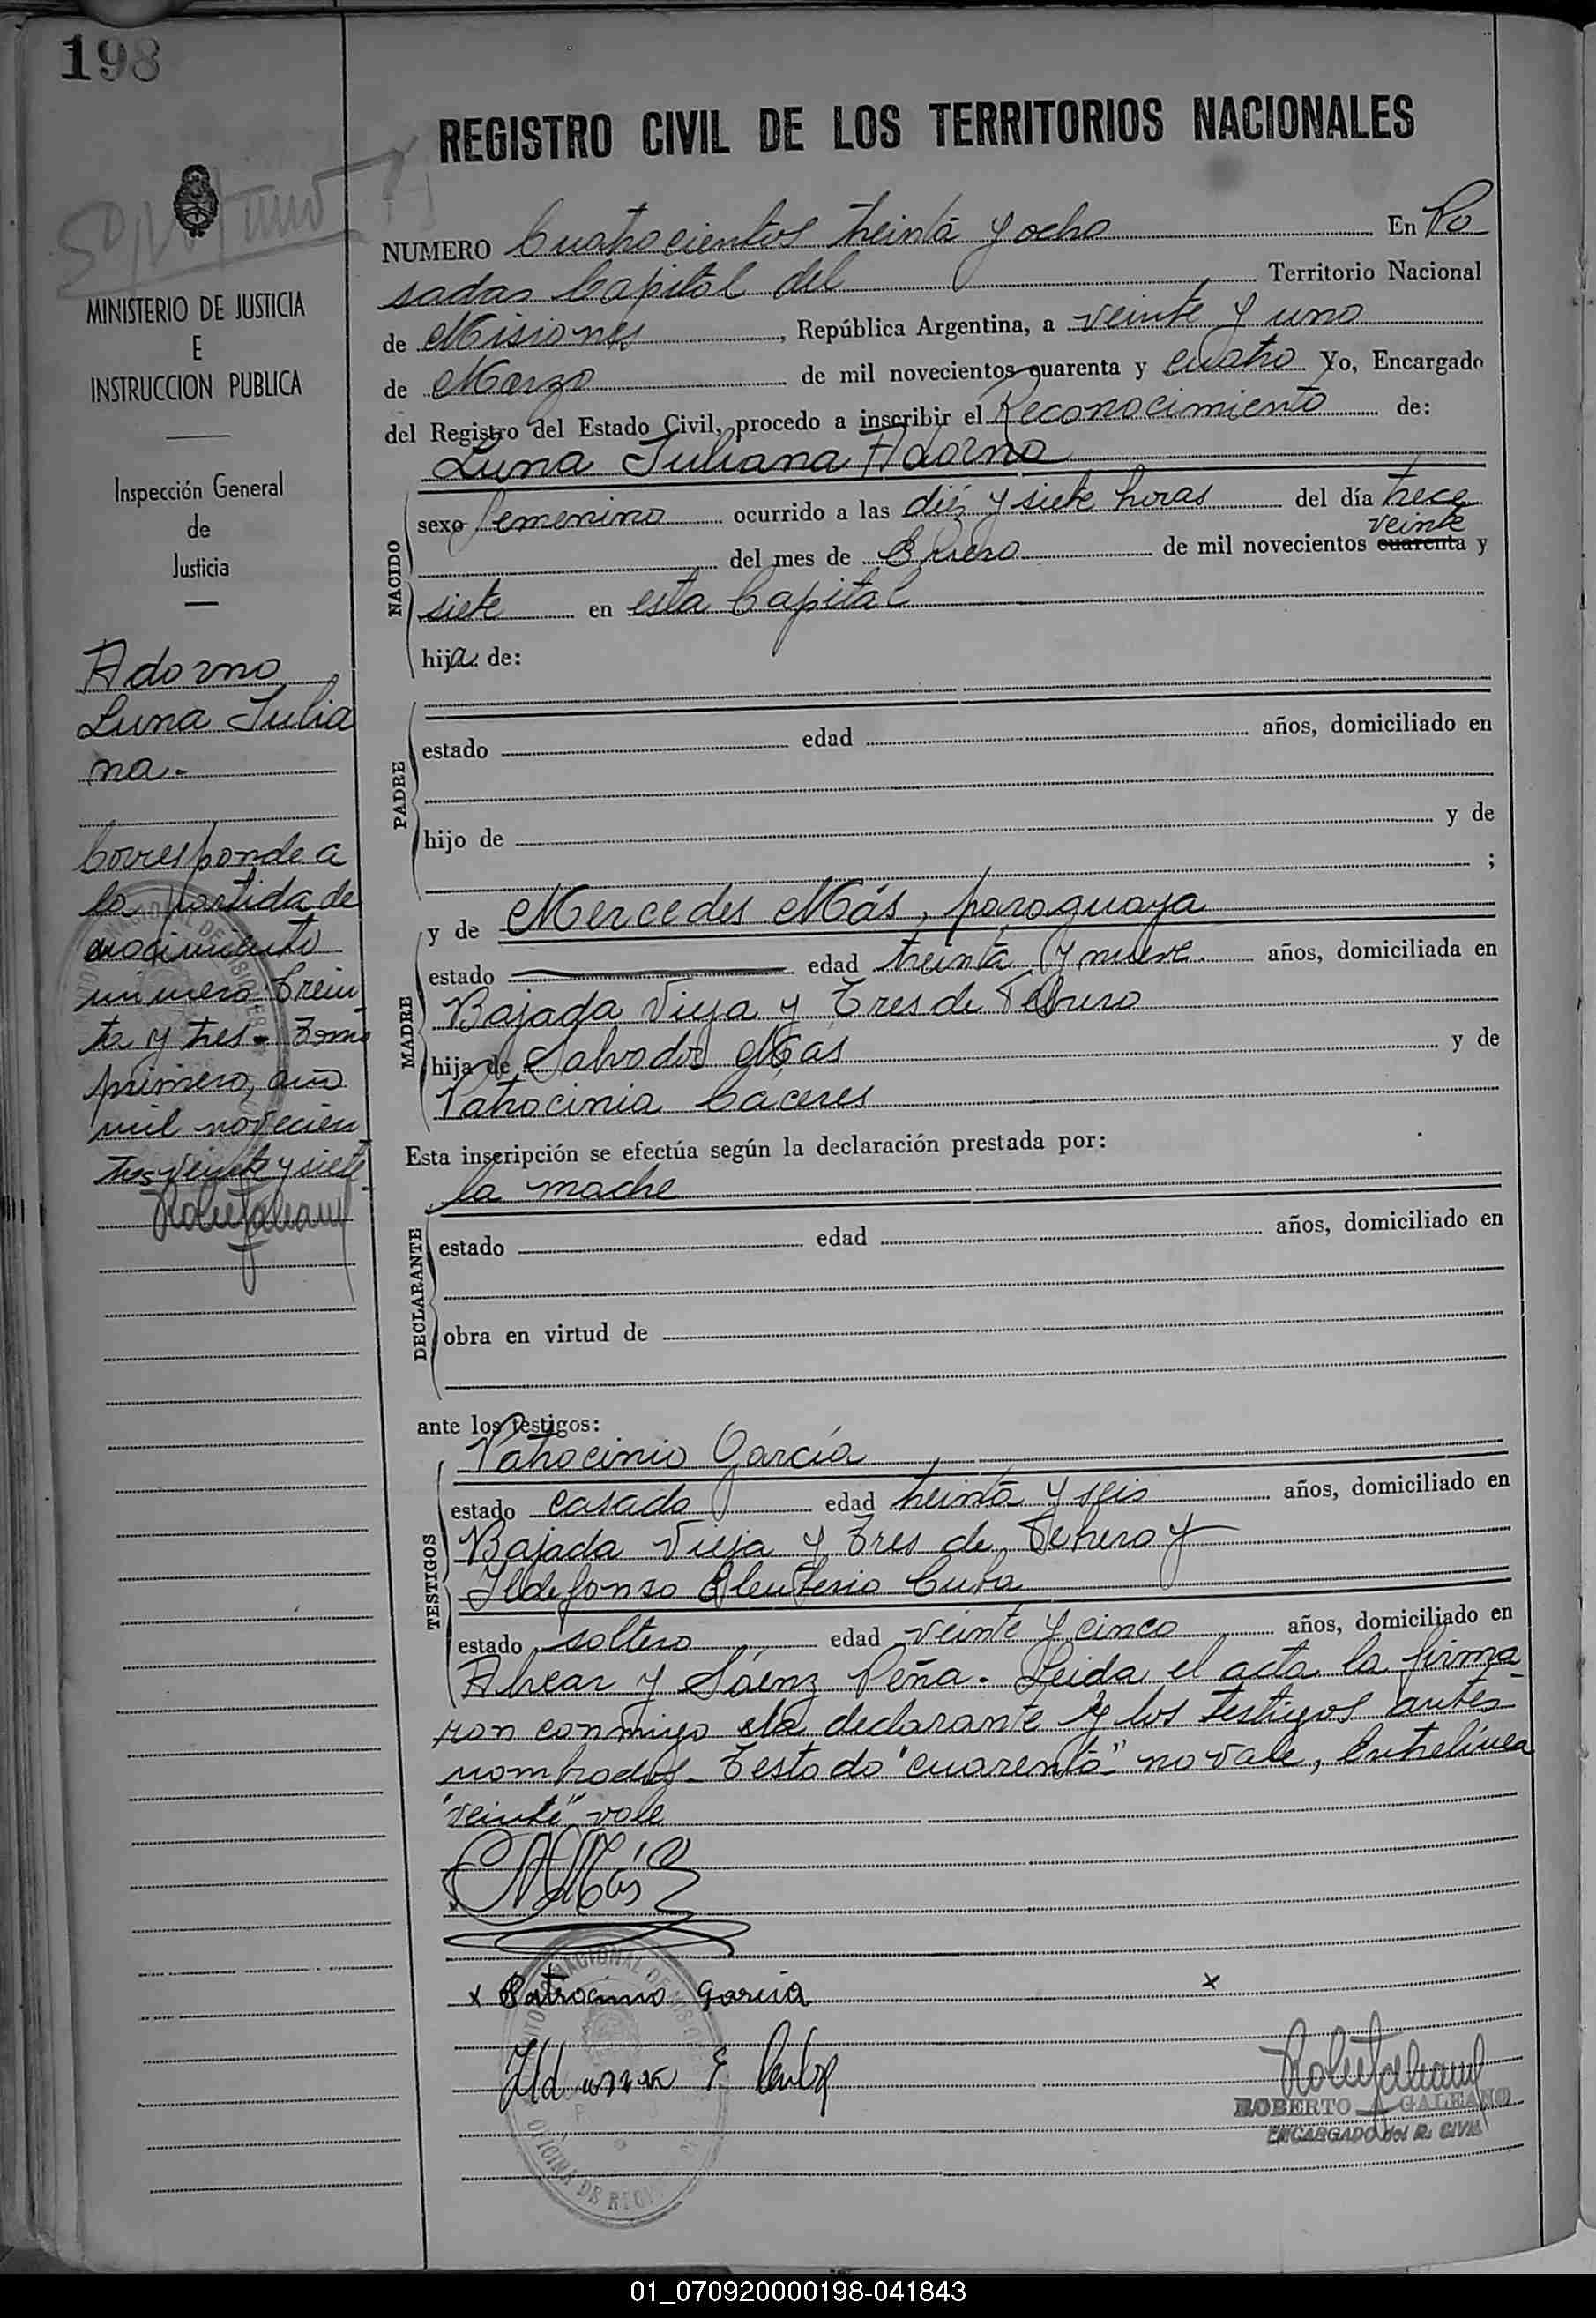 198
REGISTRO CIVIL DE LOS TERRITORIOS NACIONALES
NUMERO Cuatrocientos treinta y ocho En Po-
sadas Capital del Territorio Nacional
de Misiones, República Argentina, a veinte y uno
de Marzo de mil novecientos cuarenta y cuatro Yo, Encargado
del Registro del Estado Civil, procedo a inscribir el Reconocimiento de:
Luna Juliana Adorno
NACIDO
sexo femenino ocurrido a las diez y siete horas del día trece
veinte
del mes de Enero de mil novecientos cuarenta y
siete en esta Capital
hija de:
PADRE
estado edad años, domiciliado en
hijo de y de
;
y de Mercedes Más, paraguaya
MADRE
estado edad treinta y nueve años, domiciliada en
Bajada Vieja y Tres de Febrero
hija de Salvador Más y de
Patrocinia Cáceres
Esta inscripción se efectúa según la declaración prestada por:
la madre
DECLARANTE
estado edad años, domiciliado en
obra en virtud de
ante los testigos:
Patrocinio García
TESTIGOS
estado casado edad treinta y seis años, domiciliado en
Bajada Vieja y Tres de Febrero y
Ildefonso Eleuterio Cuba
estado soltero edad veinte y cinco años, domiciliado en
Alvear y Sáenz Peña. Leida el acta la firma-
ron conmigo la declarante y los testigos antes
nombrados. Testado "cuarenta" no vale, Entrelínea
"veinte" vale
Más
x Patrocinio Garcia x
E. Cuba
ROBERTO A GALEANO
ENCARGADO del R. CIVIL
MINISTERIO DE JUSTICIA
E
INSTRUCCION PUBLICA
Inspección General
de
Justicia
Adorno
Luna Julia
na.-
Corresponde a
la partida de
nacimiento
número trein
ta y tres - Tomo
primero, año
mil novecien
tos veinte y siete
01_070920000198-041843